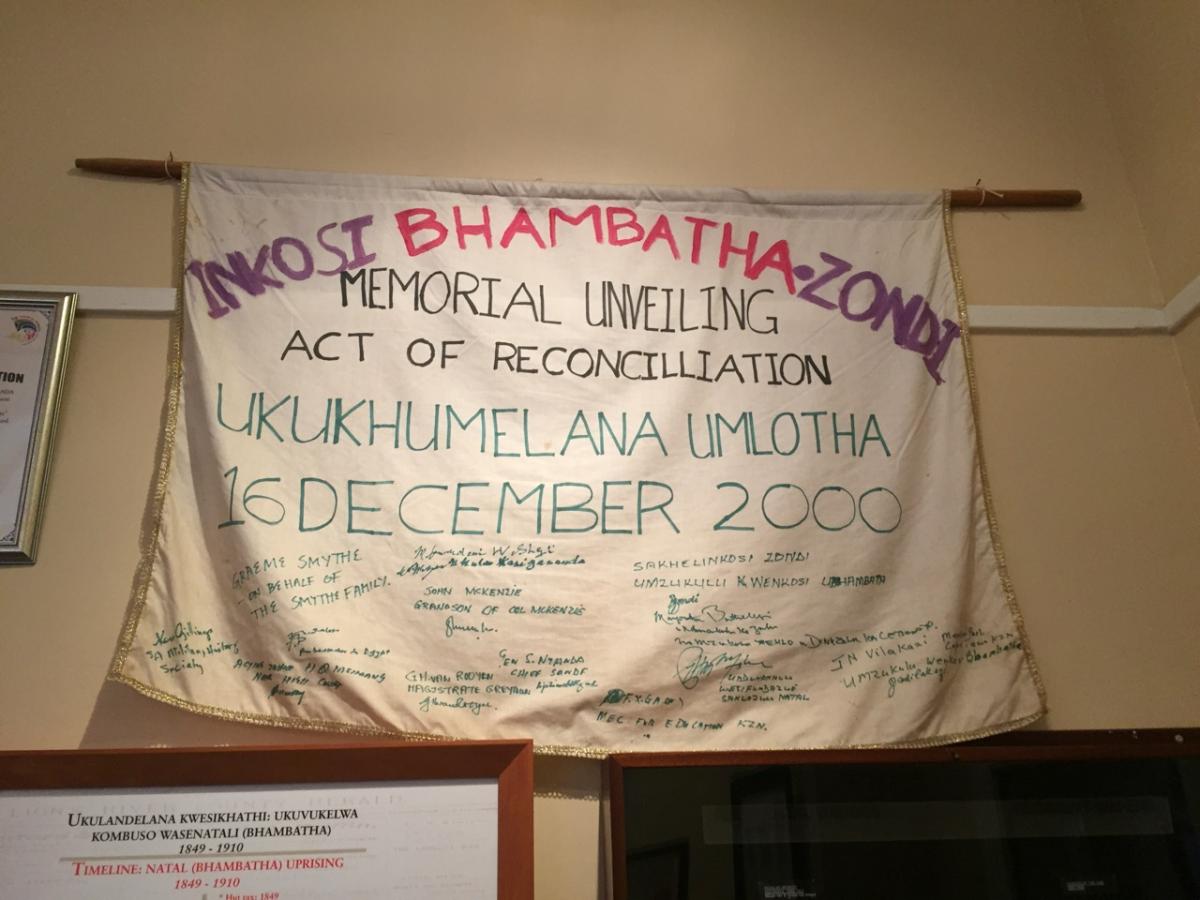 INKOSI BHAMBATHA·ZONDI
MEMORIAL UNVEILING
ACT OF RECONCILLIATION
UKUKHUMELANA UMLOTHA
16 DECEMBER 2000
GRAEME SMYTHE
ON BEHALF OF
THE SMYTHE FAMILY.
JOHN MCKENZIE
GRANDSON OF COL MCKENZIE
SAKHELINKOSI ZONDI
UMZUKULU KWENKOSI UBHAMBATA
Ken Gillings
SA Military History
Society
ACTING JUDGE
HIGH COURT
GEN S. NYANDA
CHIEF SANDF
G.H. VAN ROOYEN
MAGISTRATE GREYTOWN
JN Vilakazi
UMZUKULU WENKOSI Bhambatha
MEC FOR EDUCATION KZN.
TION
UKULANDELANA KWESIKHATHI: UKUVUKELWA
KOMBUSO WASENATALI (BHAMBATHA)
1849 - 1910
TIMELINE: NATAL (BHAMBATHA) UPRISING
1849 - 1910
* Hut tax: 1849